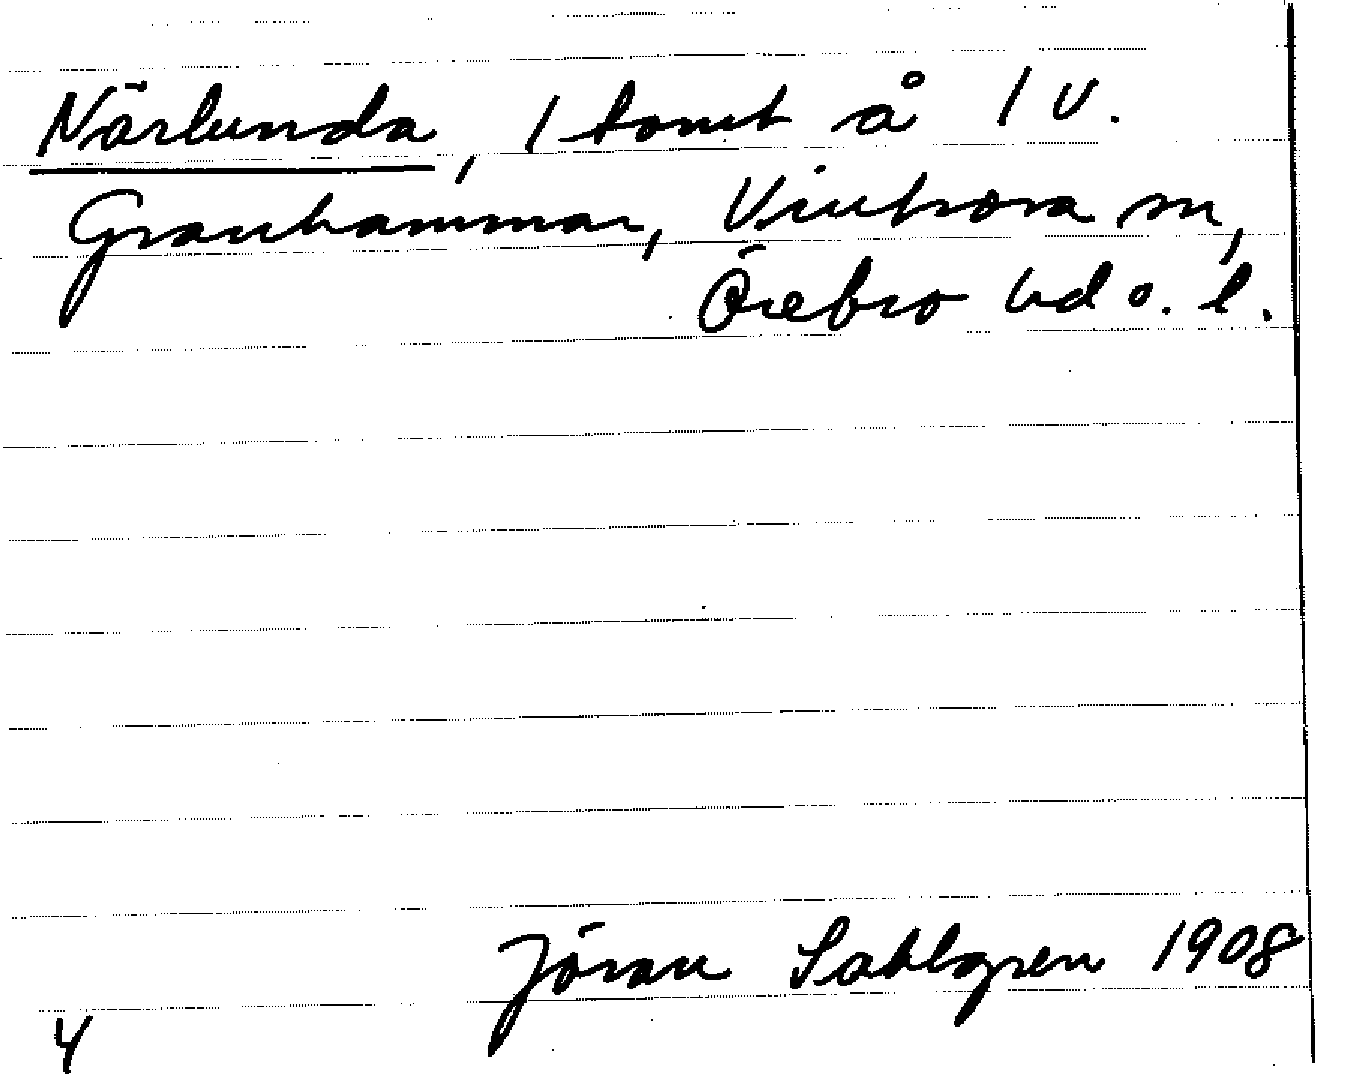 Närlunda, 1 tomt å 1 V.
Granhammar, Vintrosa sn,
Örebro hd o. l.
Jöran Sahlgren 1908
4